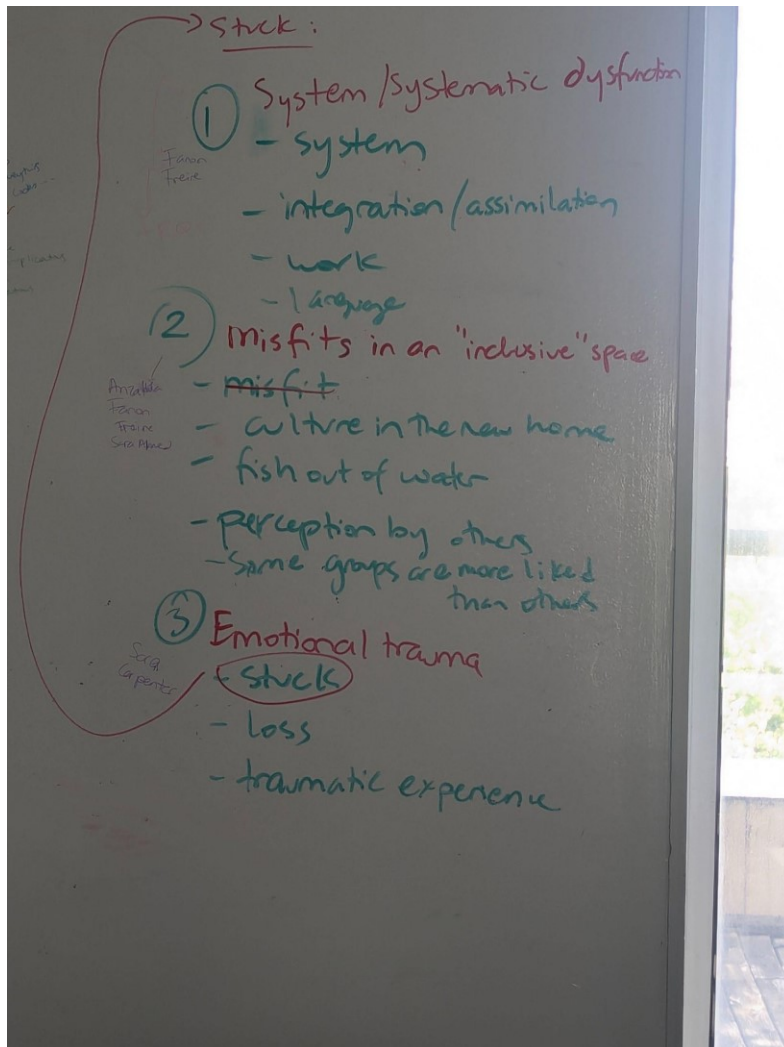 Stuck :
System / systematic dysfunction
1
- system
Fanon
Freire
- integration / assimilation
- work
- language
2
misfits in an "inclusive" space
- misfit
Fanon
- culture in the new home
- fish out of water
- perception by others
- Some groups are more liked
than others
3
Emotional trauma
Carpenter
- stuck
- loss
- traumatic experience